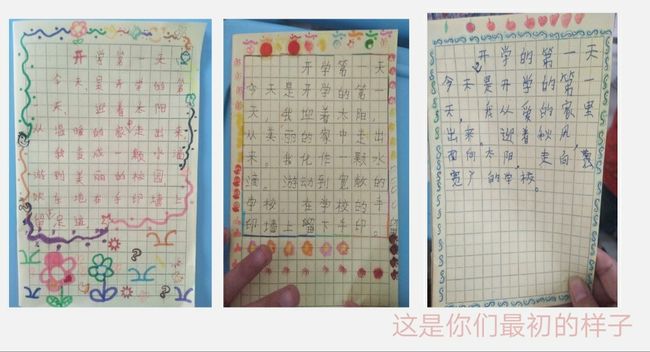 开学第一天
今天,是开学的第
天,迎着太阳
从温暖的家走出来
我变成一颗水滴
游到美丽的校园
欢乐地在手印墙上
留足迹
开学第一天
今天是开学的第
天,我迎着太阳,
从美丽的家中走出
来。我化作一颗水
滴。游动到宽敞的
学校 在学校的手
印墙上留下手印。
开学的第一天
今天是开学的第一
天,我从爱的家里
出来。迎着秋风,
面向太阳,走向
宽广的学校。
这是你们最初的样子